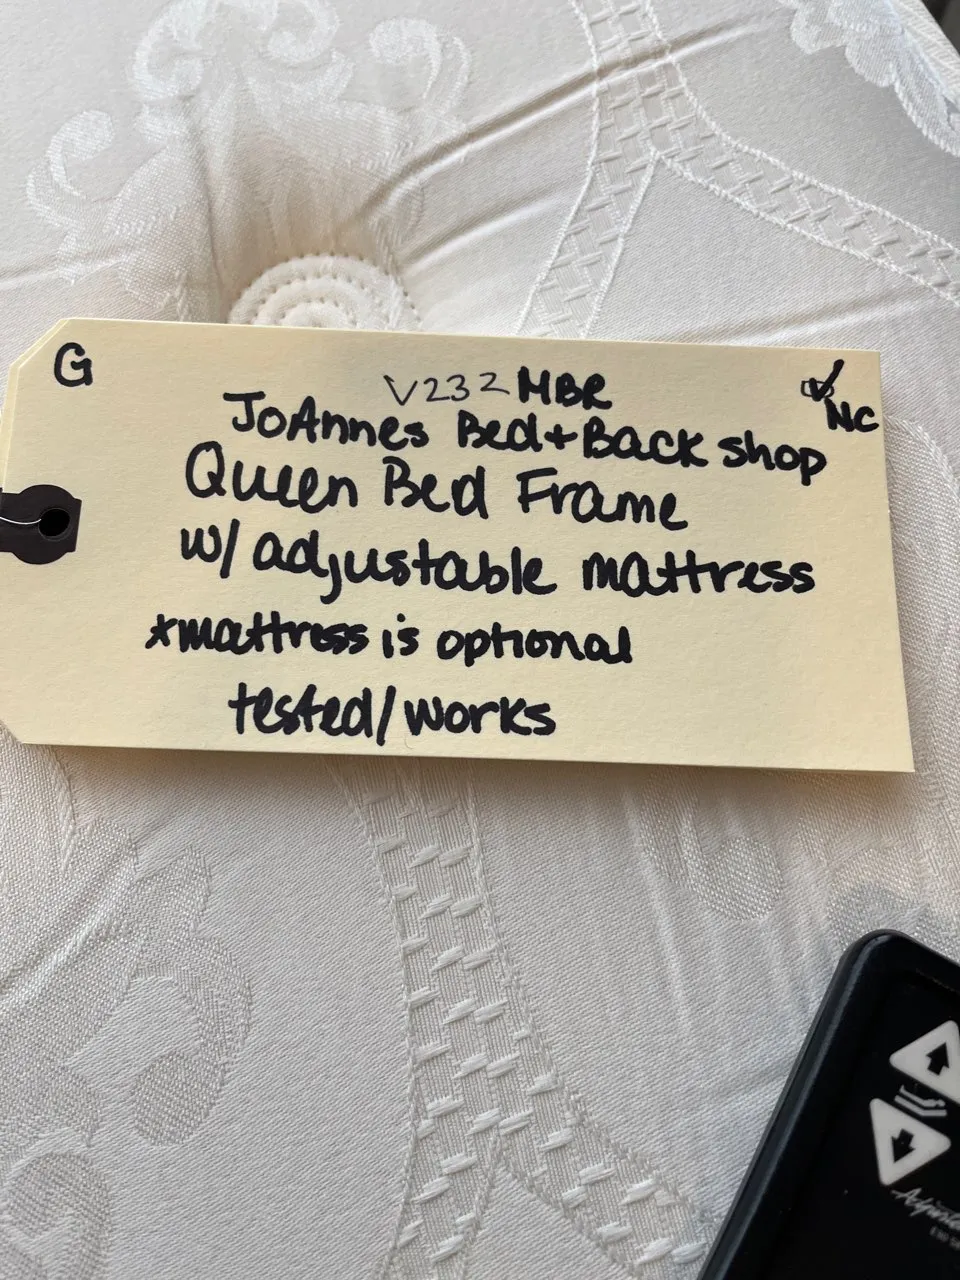 G
V232 MBR
NC
JoAnnes Bed+Back shop
Queen Bed Frame
w/ adjustable mattress
*mattress is optional
tested/works